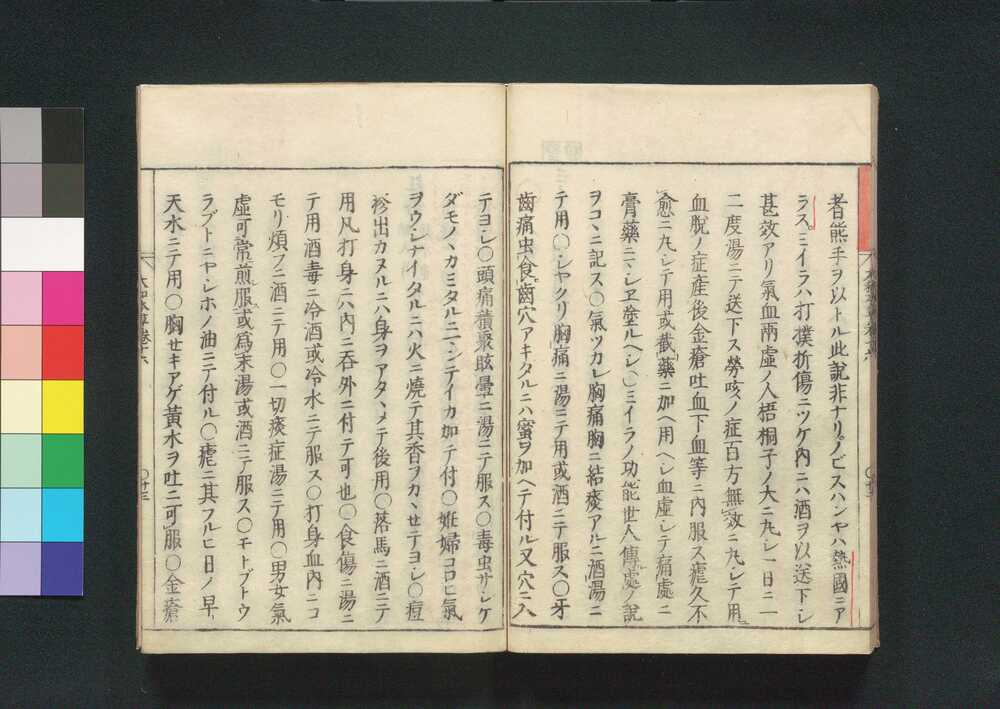 者熊手ヲ以トル此説非ナリノビスハンヤハ熱國ニア
ラスミイラハ打撲折傷ニツケ内ニハ酒ヲ以送下シ
甚效アリ氣血兩虚ノ人梧桐子ノ大ニ丸シ一日ニ一
二度湯ニテ送下ス勞咳ノ症百方無效ニ丸シテ用
血脱ノ症産後金瘡吐血下血等ニ内服ス瘧久不
愈ニ丸シテ用或截藥ニ加ヘ用ヘシ血虚シテ痛處ニ
膏藥ニマシヱ塗ルヘシ〇ミイラノ功能世人傳處ノ説
ヲコヽニ記ス〇氣ツカレ胸痛胸ニ結痰アルニ酒湯ニ
テ用〇シヤクリ胸痛ニ湯ニテ用或酒ニテ服ス〇牙
齒痛虫食齒穴アキタルニハ蜜ヲ加ヘテ付ル又穴ニ入
テヨシ〇頭痛積聚眩暈ニ湯ニテ服ス〇毒虫サシケ
ダモノヽカミタルニマンテイカ加テ付〇姙婦コロヒ氣
ヲウシナイタルニハ火ニ燒テ其香ヲカヽせテヨシ〇痘
疹出カヌルニハ身ヲアタヽメテ後用〇落馬ニ酒ニテ
用凡打身ニハ内ニ呑外ニ付テ可也〇食傷ニ湯ニ
テ用酒毒ニ冷酒或冷水ニテ服ス〇打身血内ニコ
モリ煩フニ酒ニテ用〇一切痰症湯ニテ用〇男女氣
虚可常煎服或爲末湯或酒ニテ服ス〇モトブトウ
ラブトニヤシホノ油ニテ付ル〇瘧ニ其フルヒ日ノ早
天水ニテ用〇胸せキアゲ黄水ヲ吐ニ可服〇金瘡
大和本草卷十六